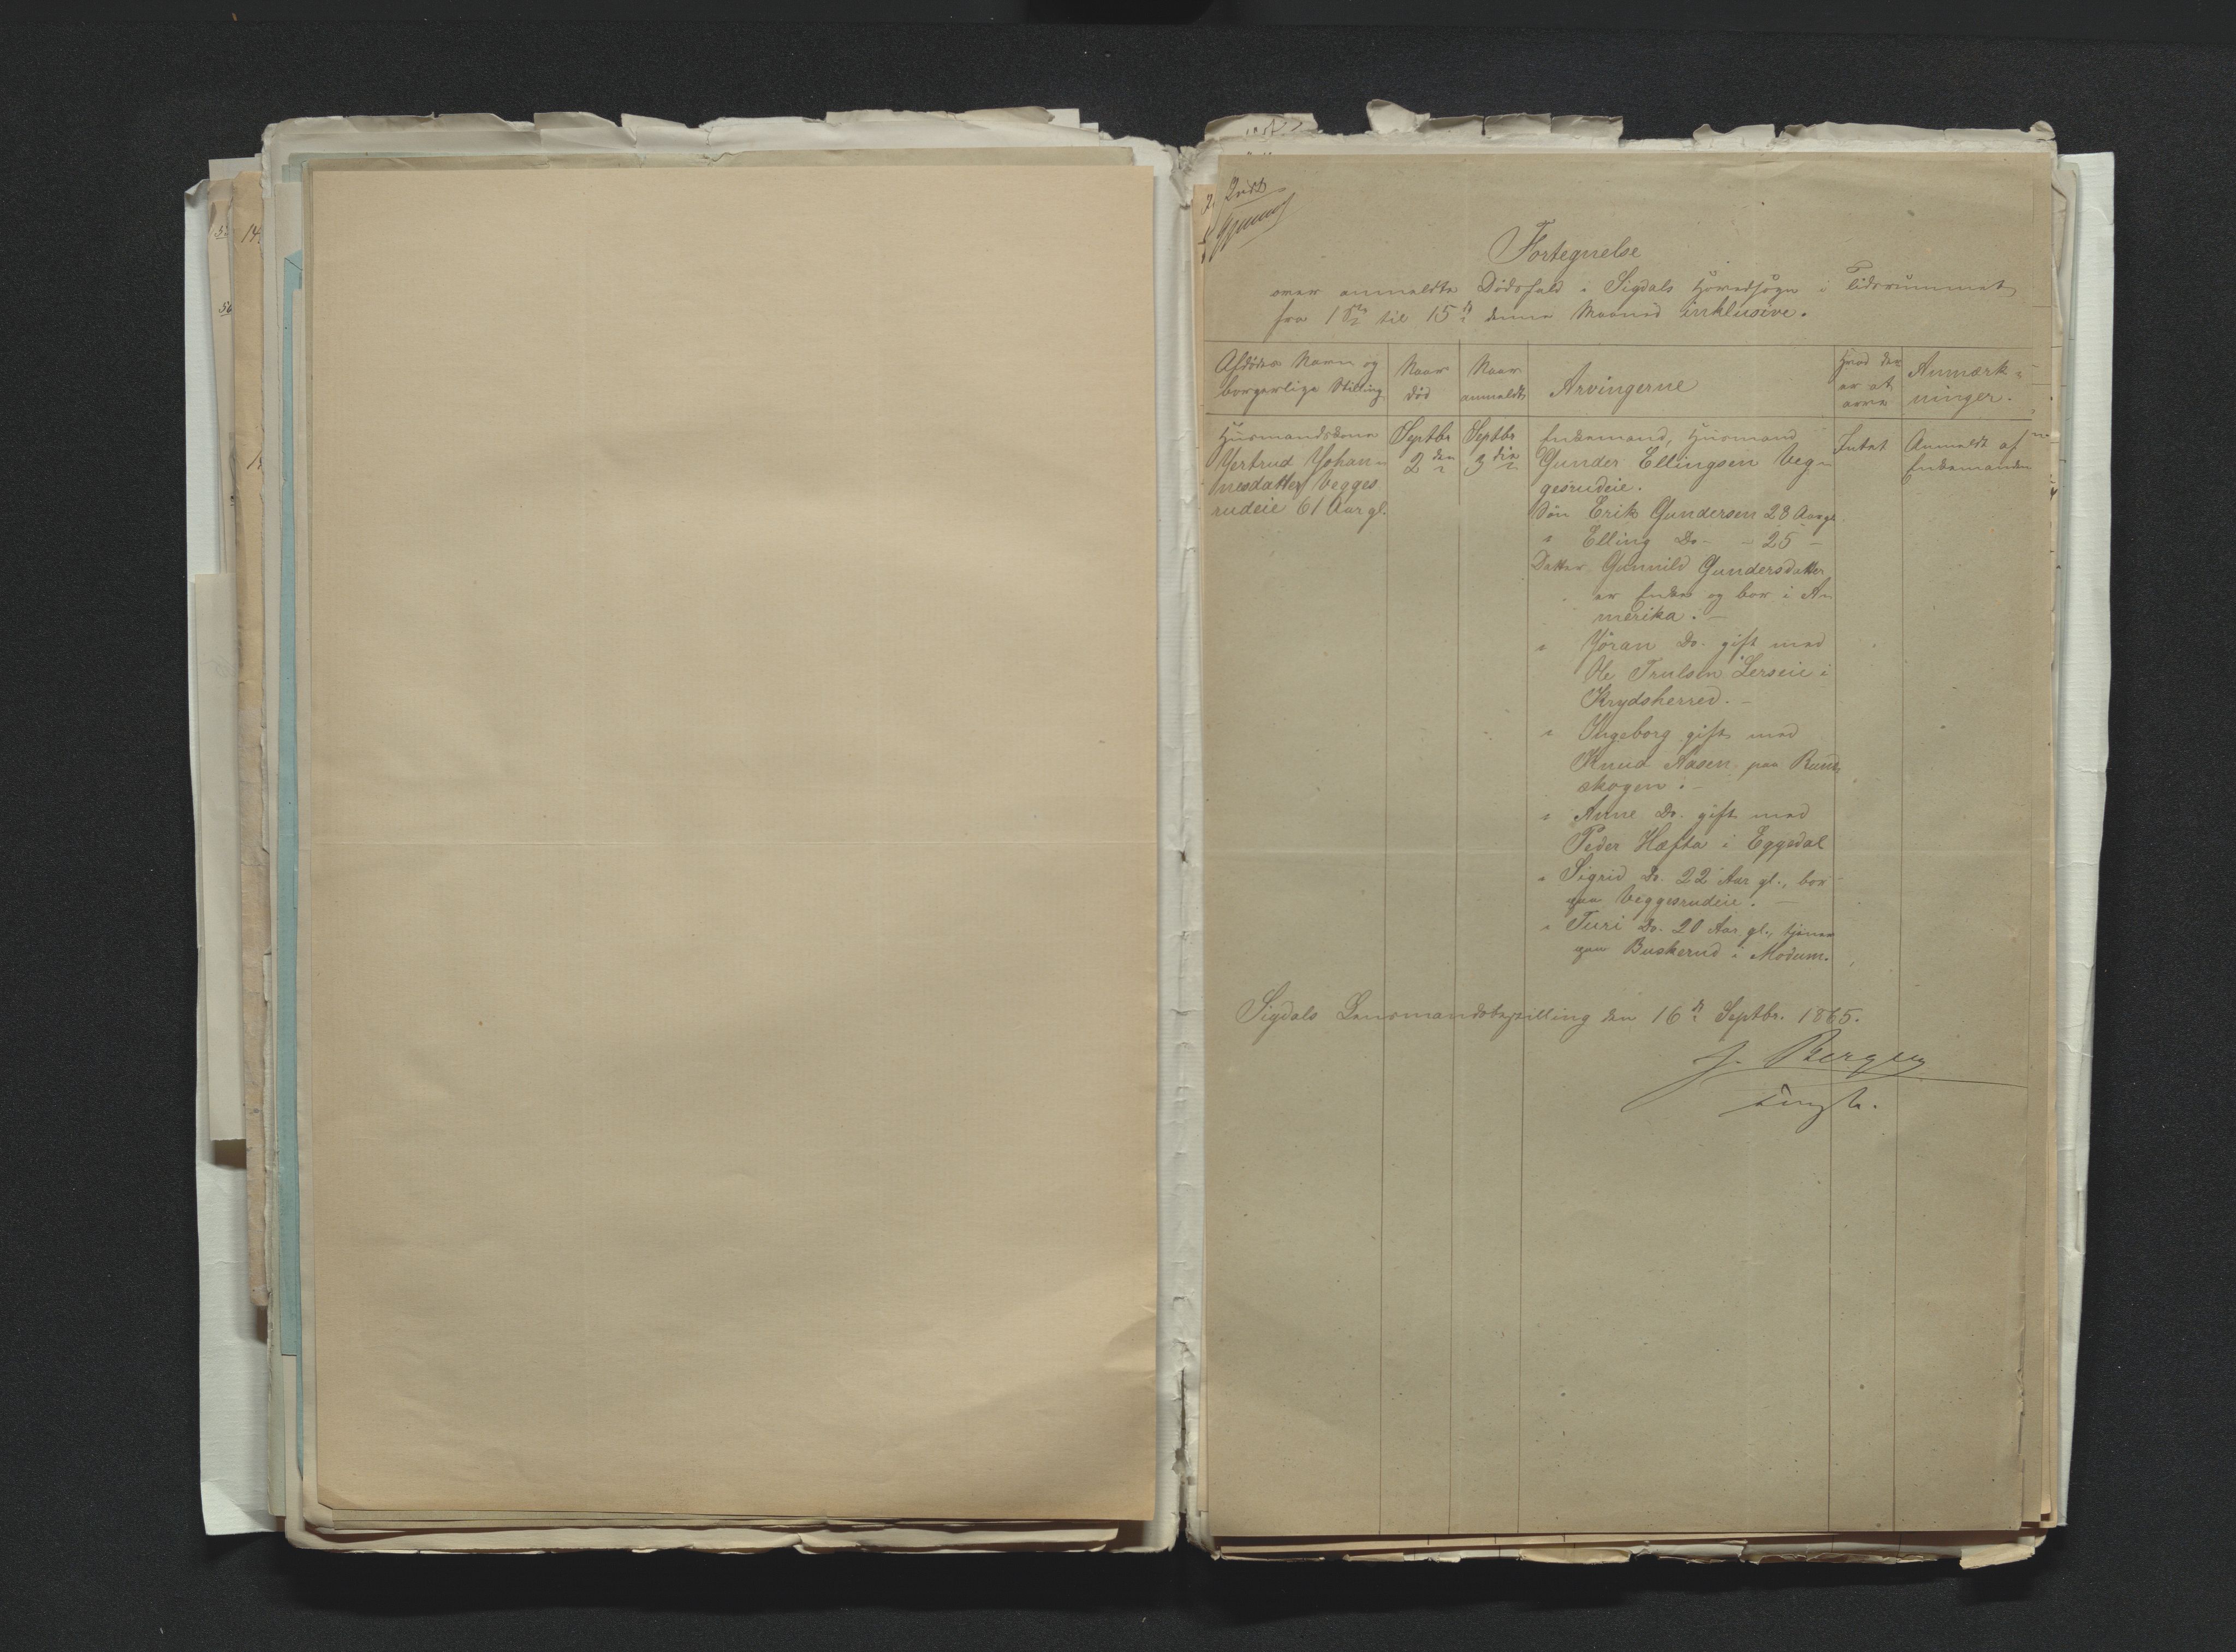 Fortegnelse
over anmeldte Dødsfald i Sigdals Hovedsogn i Tidsrummet
fra 1ste til 15de denne Maaned inklusive.
Afdødes Navn og
borgerlige Stilling
Naar
død
Naar
anmeldt
Arvingerne
Hvad der
er at
arve
Anmærk=
ninger.
Huusmandskone
Gertrud Johan=
nesdatter Vegges
rudeie 61 Aar gl.
Septbr
2den
Septbr
3die
Enkemand, Huusmand
Gunder Ellingsen Veg=
gesrudeie.
Søn Erik Gundersen 28 Aar gl.
" Elling Do - - 25 -
Datter Gunnild Gundersdatter
er Enke og bor i A=
merika. -
" Jöran Do. gift med
Ole Trulsen Lerseie i
Krydsherred. -
" Ingeborg gift med
Knud Aasen paa Rund=
skogen. -
" Anne Do. gift med
Peder Hæfta i Eggedal
" Sigrid Do. 22 Aar gl., bor
paa Veggesrudeie. -
" Turi Do. 20 Aar gl., tjener
paa Buskerud i Modum.
Intet
Anmeldt af
Enkemanden
Sigdals Lensmandsbestilling den 16de Septbr. 1865.
J. Bergen